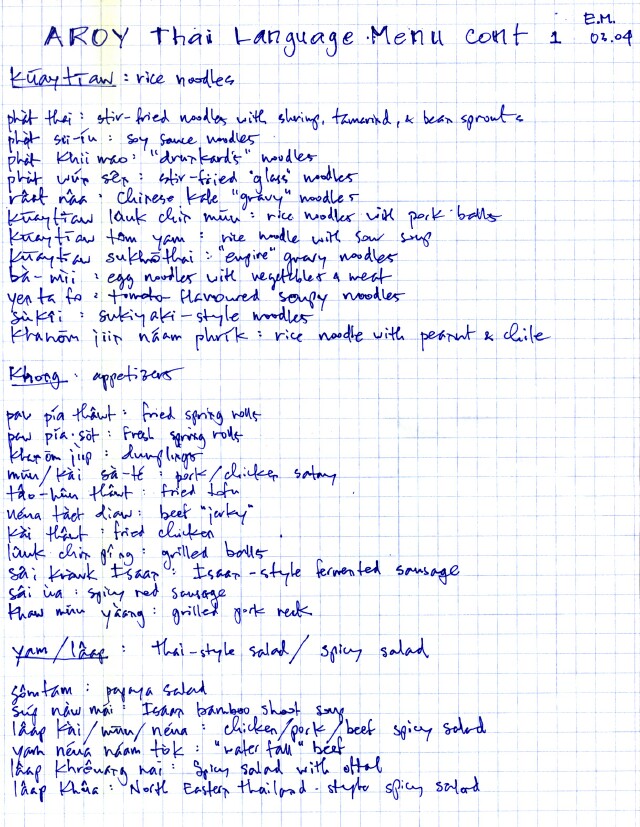 E.M.
AROY Thai Language Menu cont 1 03.04
kŭaytĭaw : rice noodles
phàt thai : stir-fried noodles with shrimp, tamarind, & bean sprouts
phàt sii-íu : soy sauce noodles
phàt khii mao : "drunkard's" noodles
phàt wún sên : stir-fried "glass" noodles
râat nâa : Chinese kale "gravy" noodles
kŭaytĭaw lûuk chin mŭu : rice noodles with pork balls
kŭaytĭaw tôm yam : rice noodle with sour soup
kŭaytĭaw sukhŏthai : "engine" gravy noodles
bà-mìi : egg noodles with vegetables & meat
yen ta fo : tomato flavoured soupy noodles
sù kîi : sukiyaki-style noodles
khanŏm jiin náam phrík : rice noodle with peanut & chile
khong : appetizers
paw pía thâwt : fried spring rolls
paw pía sòt : fresh spring rolls
khanŏm jìip : dumplings
mŭu/kài sà-té : pork/chicken satay
tâo-hûu thâwt : fried tofu
néua tàet diaw : beef "jerky"
kài thâwt : fried chicken
lûuk chin pîng : grilled balls
sâi kràwk Isaan : Isaan-style fermented sausage
sâi ùa : spicy red sausage
khaw mŭu yâang : grilled pork neck
yam/lâap : thai-style salad/spicy salad
sôm tam : papaya salad
súp nàw mái : Isaan bamboo shoot soup
lâap kài/mŭu/néua : chicken/pork/beef spicy salad
yam néua náam tòk : "waterfall" beef
lâap khrêuang nai : spicy salad with offal
lâap khûa : North Eastern Thailand-style spicy salad